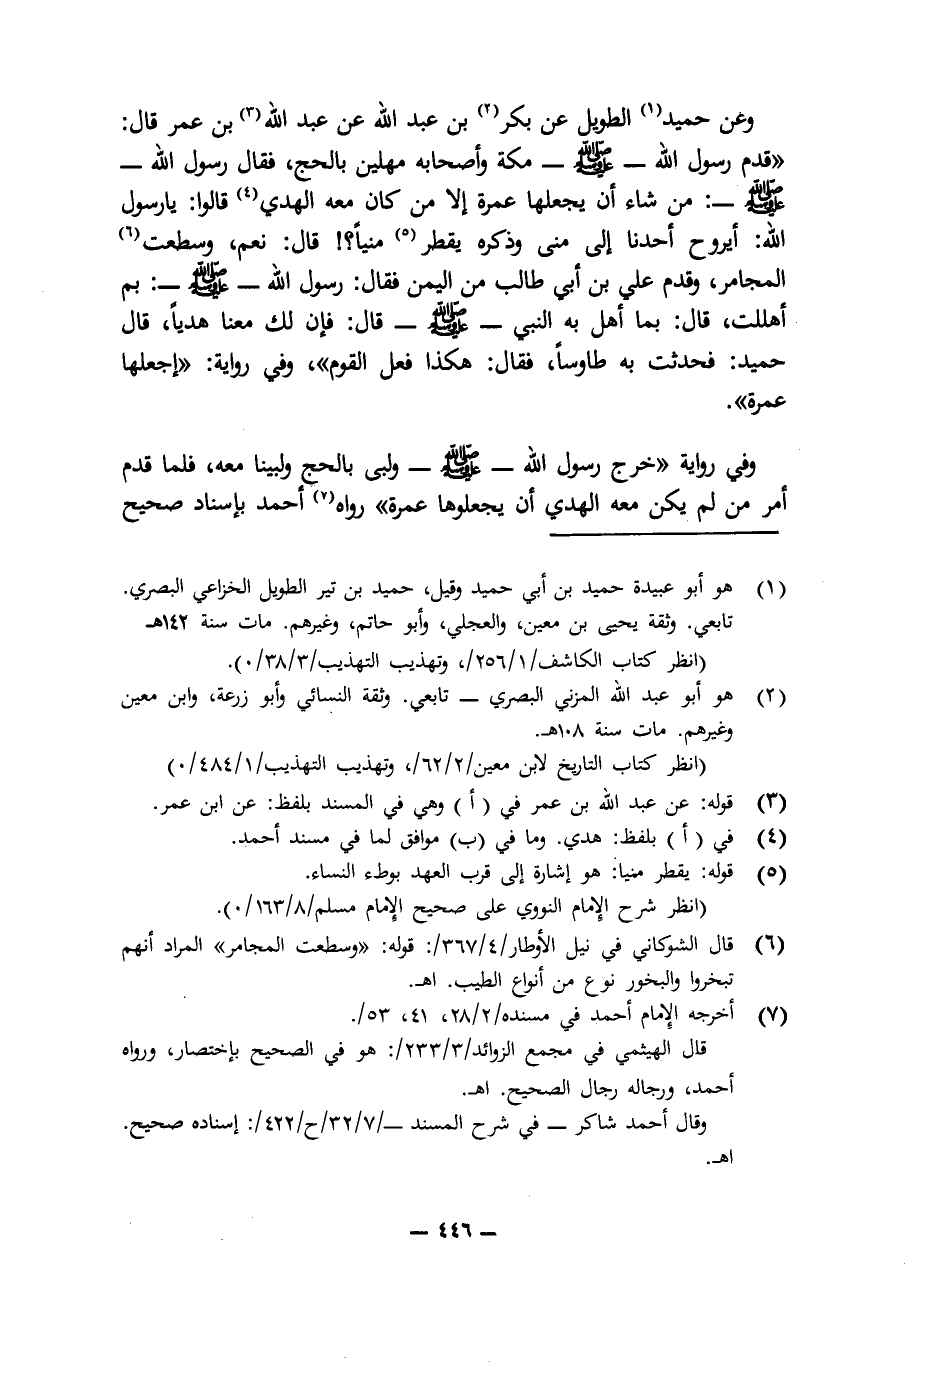 وعن حميد(١) الطويل عن بكر(٢) بن عبد الله عن عبد الله(٣) بن عمر قال:
«قدم رسول الله — ﷺ — مكة وأصحابه مهلين بالحج، فقال رسول الله —
ﷺ —: من شاء أن يجعلها عمرة إلا من كان معه الهدي(٤) قالوا: يارسول
الله: أيروح أحدنا إلى منى وذكره يقطر(٥) منياً؟! قال: نعم، وسطعت(٦)
المجامر، وقدم علي بن أبي طالب من اليمن فقال: رسول الله — ﷺ —: بم
أهللت، قال: بما أهل به النبي — ﷺ — قال: فإن لك معنا هدياً، قال
حميد: فحدثت به طاوساً، فقال: هكذا فعل القوم»، وفي رواية: «إجعلها
عمرة».
وفي رواية «خرج رسول الله — ﷺ — ولبى بالحج ولبينا معه، فلما قدم
أمر من لم يكن معه الهدي أن يجعلوها عمرة» رواه(٧) أحمد بإسناد صحيح
(١) هو أبو عبيدة حميد بن أبي حميد وقيل، حميد بن تير الطويل الخزاعي البصري.
تابعي. وثقة يحيى بن معين، والعجلي، وأبو حاتم، وغيرهم. مات سنة ١٤٢هـ
(انظر كتاب الكاشف/٢٥٦/١/، وتهذيب التهذيب/٣٨/٣/٠).
(٢) هو أبو عبد الله المزني البصري — تابعي. وثقة النسائي وأبو زرعة، وابن معين
وغيرهم. مات سنة ١٠٨هـ.
(انظر كتاب التاريخ لابن معين/٦٢/٢/، وتهذيب التهذيب/٤٨٤/١/٠)
(٣) قوله: عن عبد الله بن عمر في ( أ ) وهي في المسند بلفظ: عن ابن عمر.
(٤) في ( أ ) بلفظ: هدي. وما في (ب) موافق لما في مسند أحمد.
(٥) قوله: يقطر منيا: هو إشارة إلى قرب العهد بوطء النساء.
(انظر شرح الإمام النووي على صحيح الإمام مسلم/١٦٣/٨/٠).
(٦) قال الشوكاني في نيل الأوطار/٣٦٧/٤/: قوله: «وسطعت المجامر» المراد أنهم
تبخروا والبخور نوع من أنواع الطيب. اهـ.
(٧) أخرجه الإمام أحمد في مسنده/٢٨/٢، ٤١، ٥٣/.
قال الهيثمي في مجمع الزوائد/٢٣٣/٣/: هو في الصحيح بإختصار، ورواه
أحمد، ورجاله رجال الصحيح. اهـ.
وقال أحمد شاكر — في شرح المسند —/٣٢/٧/ح/٤٢٢/: إسناده صحيح.
اهـ.
— ٤٤٦ —